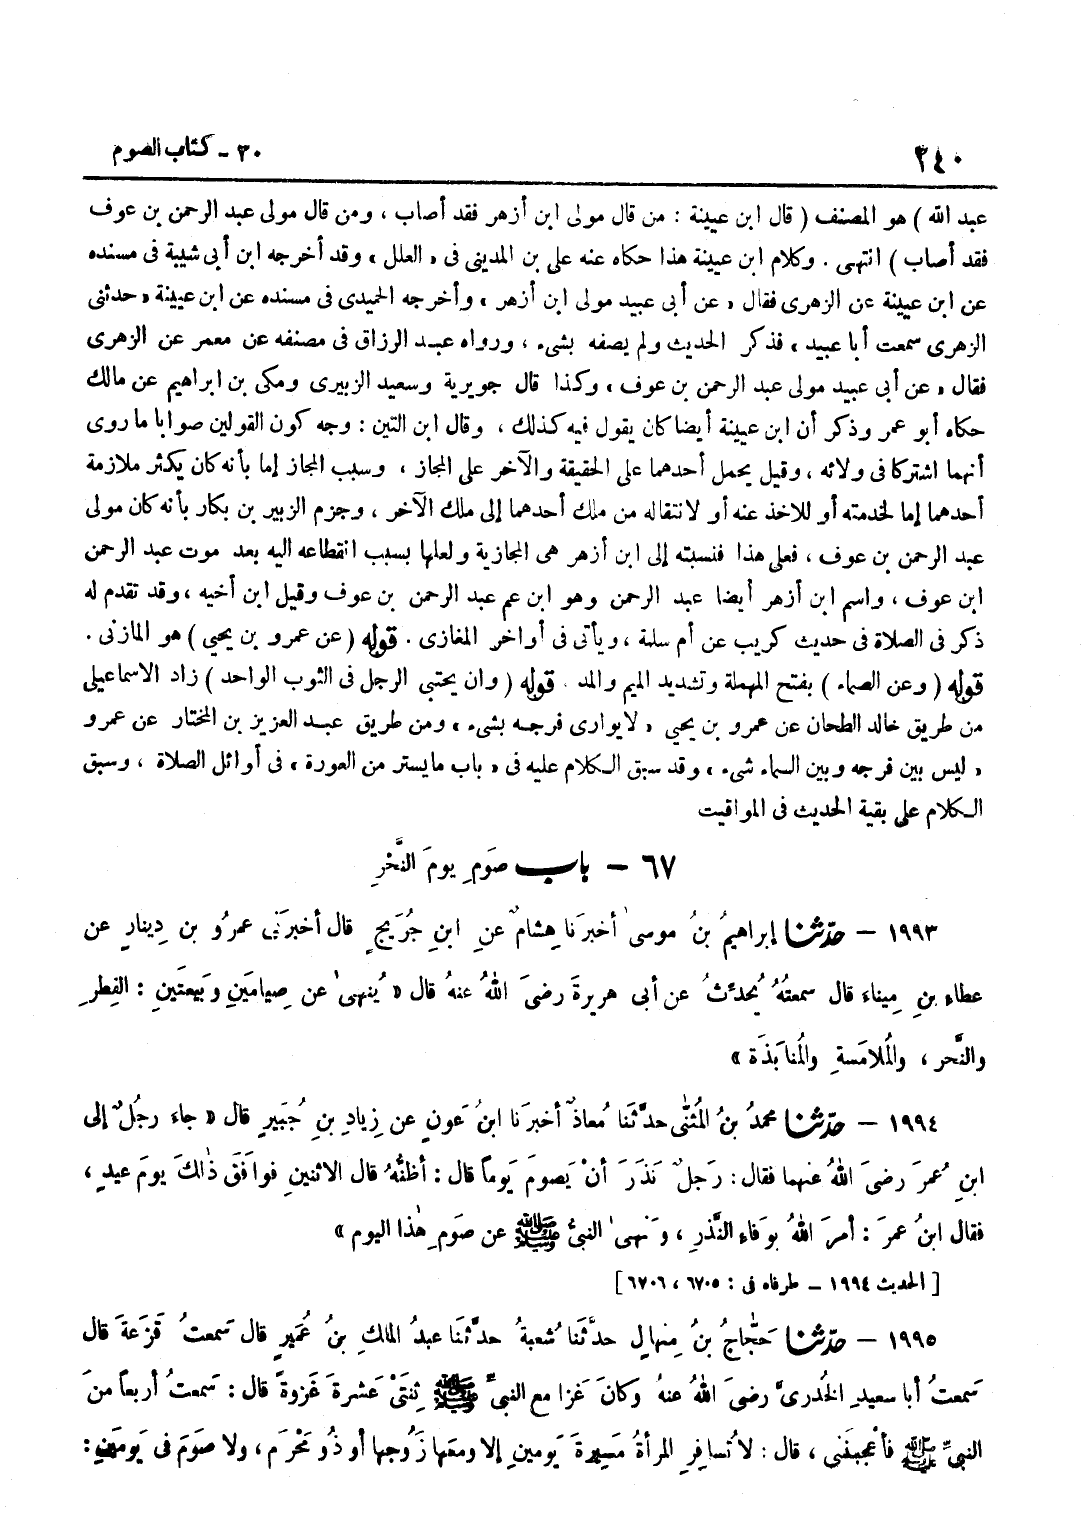 ٢٤٠ ٣٠ - كتاب الصوم
عبد الله ) هو المصنف ( قال ابن عيينة : من قال مولى ابن أزهر فقد أصاب ، ومن قال مولى عبد الرحمن بن عوف
فقد أصاب ) انتهى . وكلام ابن عيينة هذا حكاه عنه على بن المدينى فى « العلل » وقد أخرجه ابن أبى شيبة فى مسنده
عن ابن عيينة عن الزهرى فقال « عن أبى عبيد مولى ابن أزهر » وأخرجه الحميدى فى مسنده عن ابن عيينة « حدثنى
الزهرى سمعت أبا عبيد » فذكر الحديث ولم يصفه بشىء ، ورواه عبد الرزاق فى مصنفه عن معمر عن الزهرى
فقال « عن أبى عبيد مولى عبد الرحمن بن عوف » وكذا قال جويرية وسعيد الزبيرى ومكى بن ابراهيم عن مالك
حكاه أبو عمر وذكر أن ابن عيينة أيضا كان يقول فيه كذلك ، وقال ابن التين : وجه كون القولين صوابا ما روى
أنهما اشتركا فى ولائه ، وقيل يحمل أحدهما على الحقيقة والآخر على المجاز ، وسبب المجاز إما بأنه كان يكثر ملازمة
أحدهما إما لخدمته أو للاخذ عنه أو لانتقاله من ملك أحدهما إلى ملك الآخر ، وجزم الزبير بن بكار بأنه كان مولى
عبد الرحمن بن عوف ، فعلى هذا فنسبته إلى ابن أزهر هى المجازية ولعلها بسبب انقطاعه اليه بعد موت عبد الرحمن
ابن عوف ، واسم ابن أزهر أيضا عبد الرحمن وهو ابن عم عبد الرحمن بن عوف وقيل ابن أخيه ، وقد تقدم له
ذكر فى الصلاة فى حديث كريب عن أم سلمة ، ويأتى فى أواخر المغازى . قوله ( عن عمرو بن يحيى ) هو المازنى .
قوله ( وعن الصماء ) بفتح المهملة وتشديد الميم والمد . قوله ( وان يحتبي الرجل فى الثوب الواحد ) زاد الاسماعيلى
من طريق خالد الطحان عن عمرو بن يحيى « لا يوارى فرجه بشىء » ومن طريق عبد العزيز بن المختار عن عمرو
« ليس بين فرجه وبين السماء شىء » وقد سبق الكلام عليه فى « باب ما يستر من العورة » فى أوائل الصلاة ، وسبق
الكلام على بقية الحديث فى المواقيت
٦٧ - باب صَومِ يومَ النَّحْرِ
١٩٩٣ - حدّثنا إبراهيمُ بنُ موسى أخبرَنا هِشامٌ عنِ ابنِ جُرَيجٍ قال أخبرَنى عمرُو بن دِينارٍ عن
عطاءِ بنِ مِيناءَ قال سمعتُهُ يُحدِّثُ عن أبى هريرةَ رضىَ اللهُ عنه قال « يُنهى عن صِيامَينِ وبَيعتَينِ : الفِطرِ
والنَّحر ، والمُلامَسةِ والمُنابَذَة »
١٩٩٤ - حدّثنا محمدُ بنُ المُثنّى حدَّثَنا مُعاذٌ أخبرَنا ابنُ عَونٍ عن زِيادِ بنِ جُبَيرٍ قال « جاءَ رجُلٌ إلى
ابنِ عُمرَ رضىَ اللهُ عنهما فقال : رَجلٌ نَذَرَ أنْ يَصومَ يَوماً قال : أظنُّهُ قال الاثنينِ فوافَقَ ذٰلكَ يومَ عيدٍ ،
فقال ابنُ عمرَ : أمرَ اللهُ بوَفاءِ النَّذرِ ، ونَهى النبىُّ ﷺ عن صَومِ هٰذا اليوم »
[ الحديث ١٩٩٤ - طرفاه فى : ٦٧٠٥ ، ٦٧٠٦ ]
١٩٩٥ - حدّثنا حَجّاجُ بنُ مِنهالٍ حدَّثَنا شُعبةُ حدَّثَنا عبدُ الملكِ بنُ عُمَيرٍ قال سَمعتُ قَزَعةَ قال
سَمعتُ أبا سعيدٍ الخُدرىَّ رضىَ اللهُ عنهُ وكانَ غَزا مع النبىِّ ﷺ ثِنتَىْ عَشرةَ غَزوةً قال : سَمعتُ أربعاً منَ
النبىِّ ﷺ فأعْجَبنَنى ، قال : لا تُسافِرِ المرأةُ مَسِيرةَ يَومينِ إلا ومعَها زَوجُها أو ذُو مَحْرَمٍ ، ولا صَومَ فى يَومَينِ :